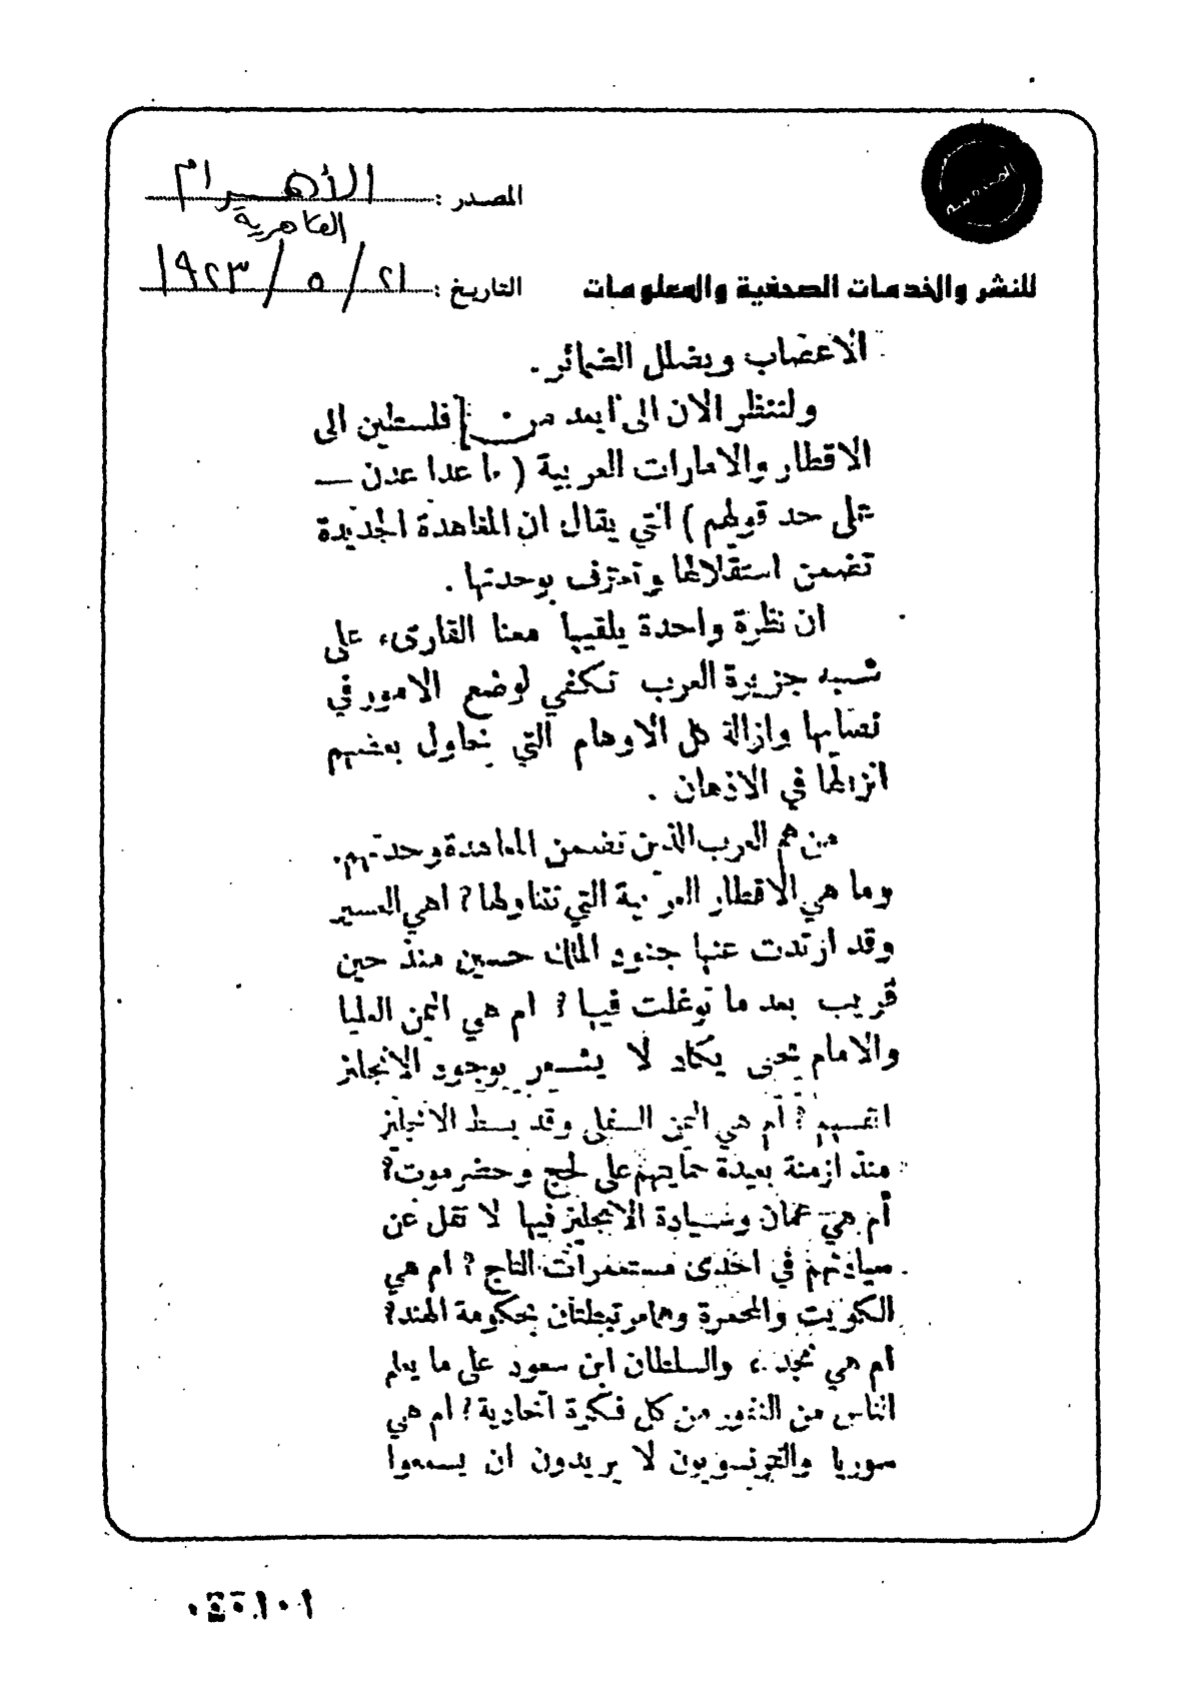 المصدر : الأهرام
القاهرية
التاريخ : ٢١ / ٥ / ١٩٢٣
للنشر والخدمات الصحفية والمعلومات
الاعصاب ويضلل الضمائر .
ولننظر الان الى ابعد من فلسطين الى
الاقطار والامارات العربية ( ما عدا عدن —
على حد قولهم ) التي يقال ان المعاهدة الجديدة
تضمن استقلالها وتعترف بوحدتها .
ان نظرة واحدة يلقيها معنا القارىء على
شبه جزيرة العرب تكفي لوضع الامور في
نصابها وازالة كل الاوهام التي يحاول بعضهم
انزالها في الاذهان .
من هم العرب الذين تضمن المعاهدة وحدتهم .
وما هي الاقطار العربية التي تتناولها ؟ اهي العسير
وقد ارتدت عنها جنود الملك حسين منذ حين
قريب بعد ما توغلت فيها ؟ ام هي اليمن العليا
والامام يحيى يكاد لا يشعر بوجود الانجليز
انفسهم ؟ أم هي اليمن السفلى وقد بسط الانجليز
منذ ازمنة بعيدة حمايتهم على لحج وحضرموت ؟
أم هي عمان وسيادة الانجليز فيها لا تقل عن
سيادتهم في احدى مستعمرات التاج ؟ ام هي
الكويت والمحمرة وهما مرتبطتان بحكومة الهند ؟
ام هي نجد ، والسلطان ابن سعود على ما يعلم
الناس من النفور من كل فكرة اتحادية ؟ ام هي
سوريا والفرنسويون لا يريدون ان يسمعوا